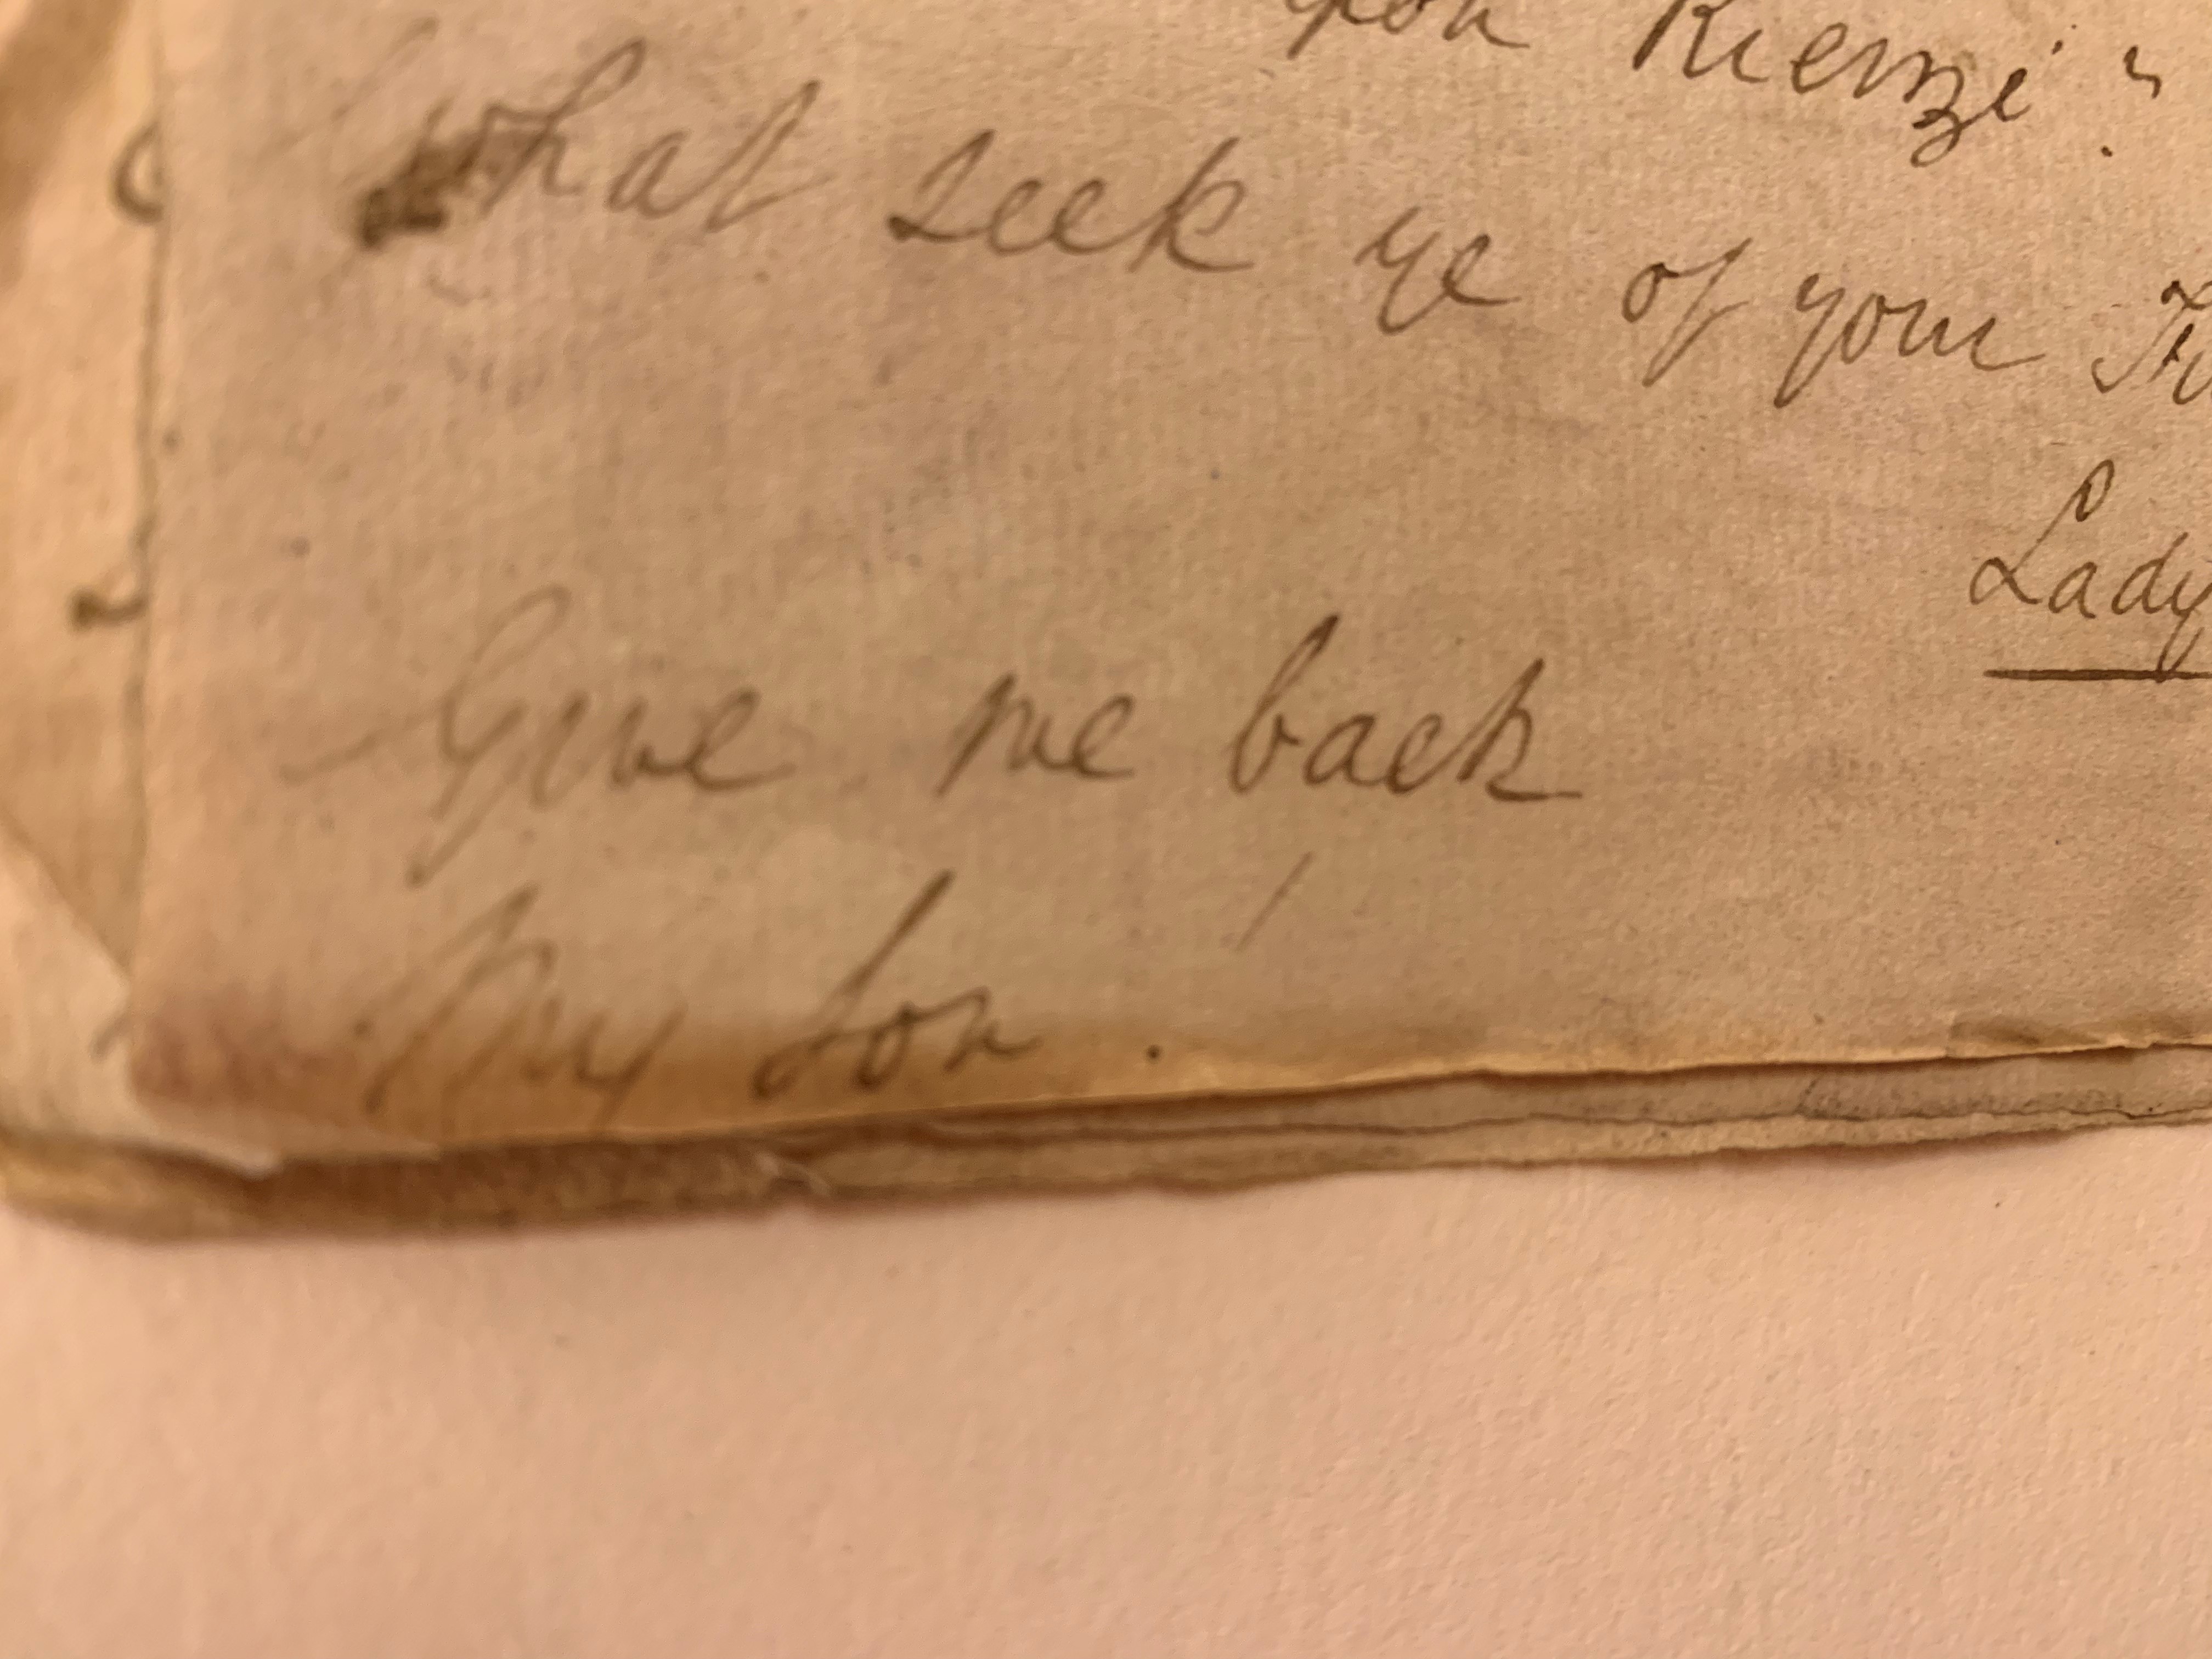 upon Rienzi?
what seek ye of your
Lady
Give me back
My Son !